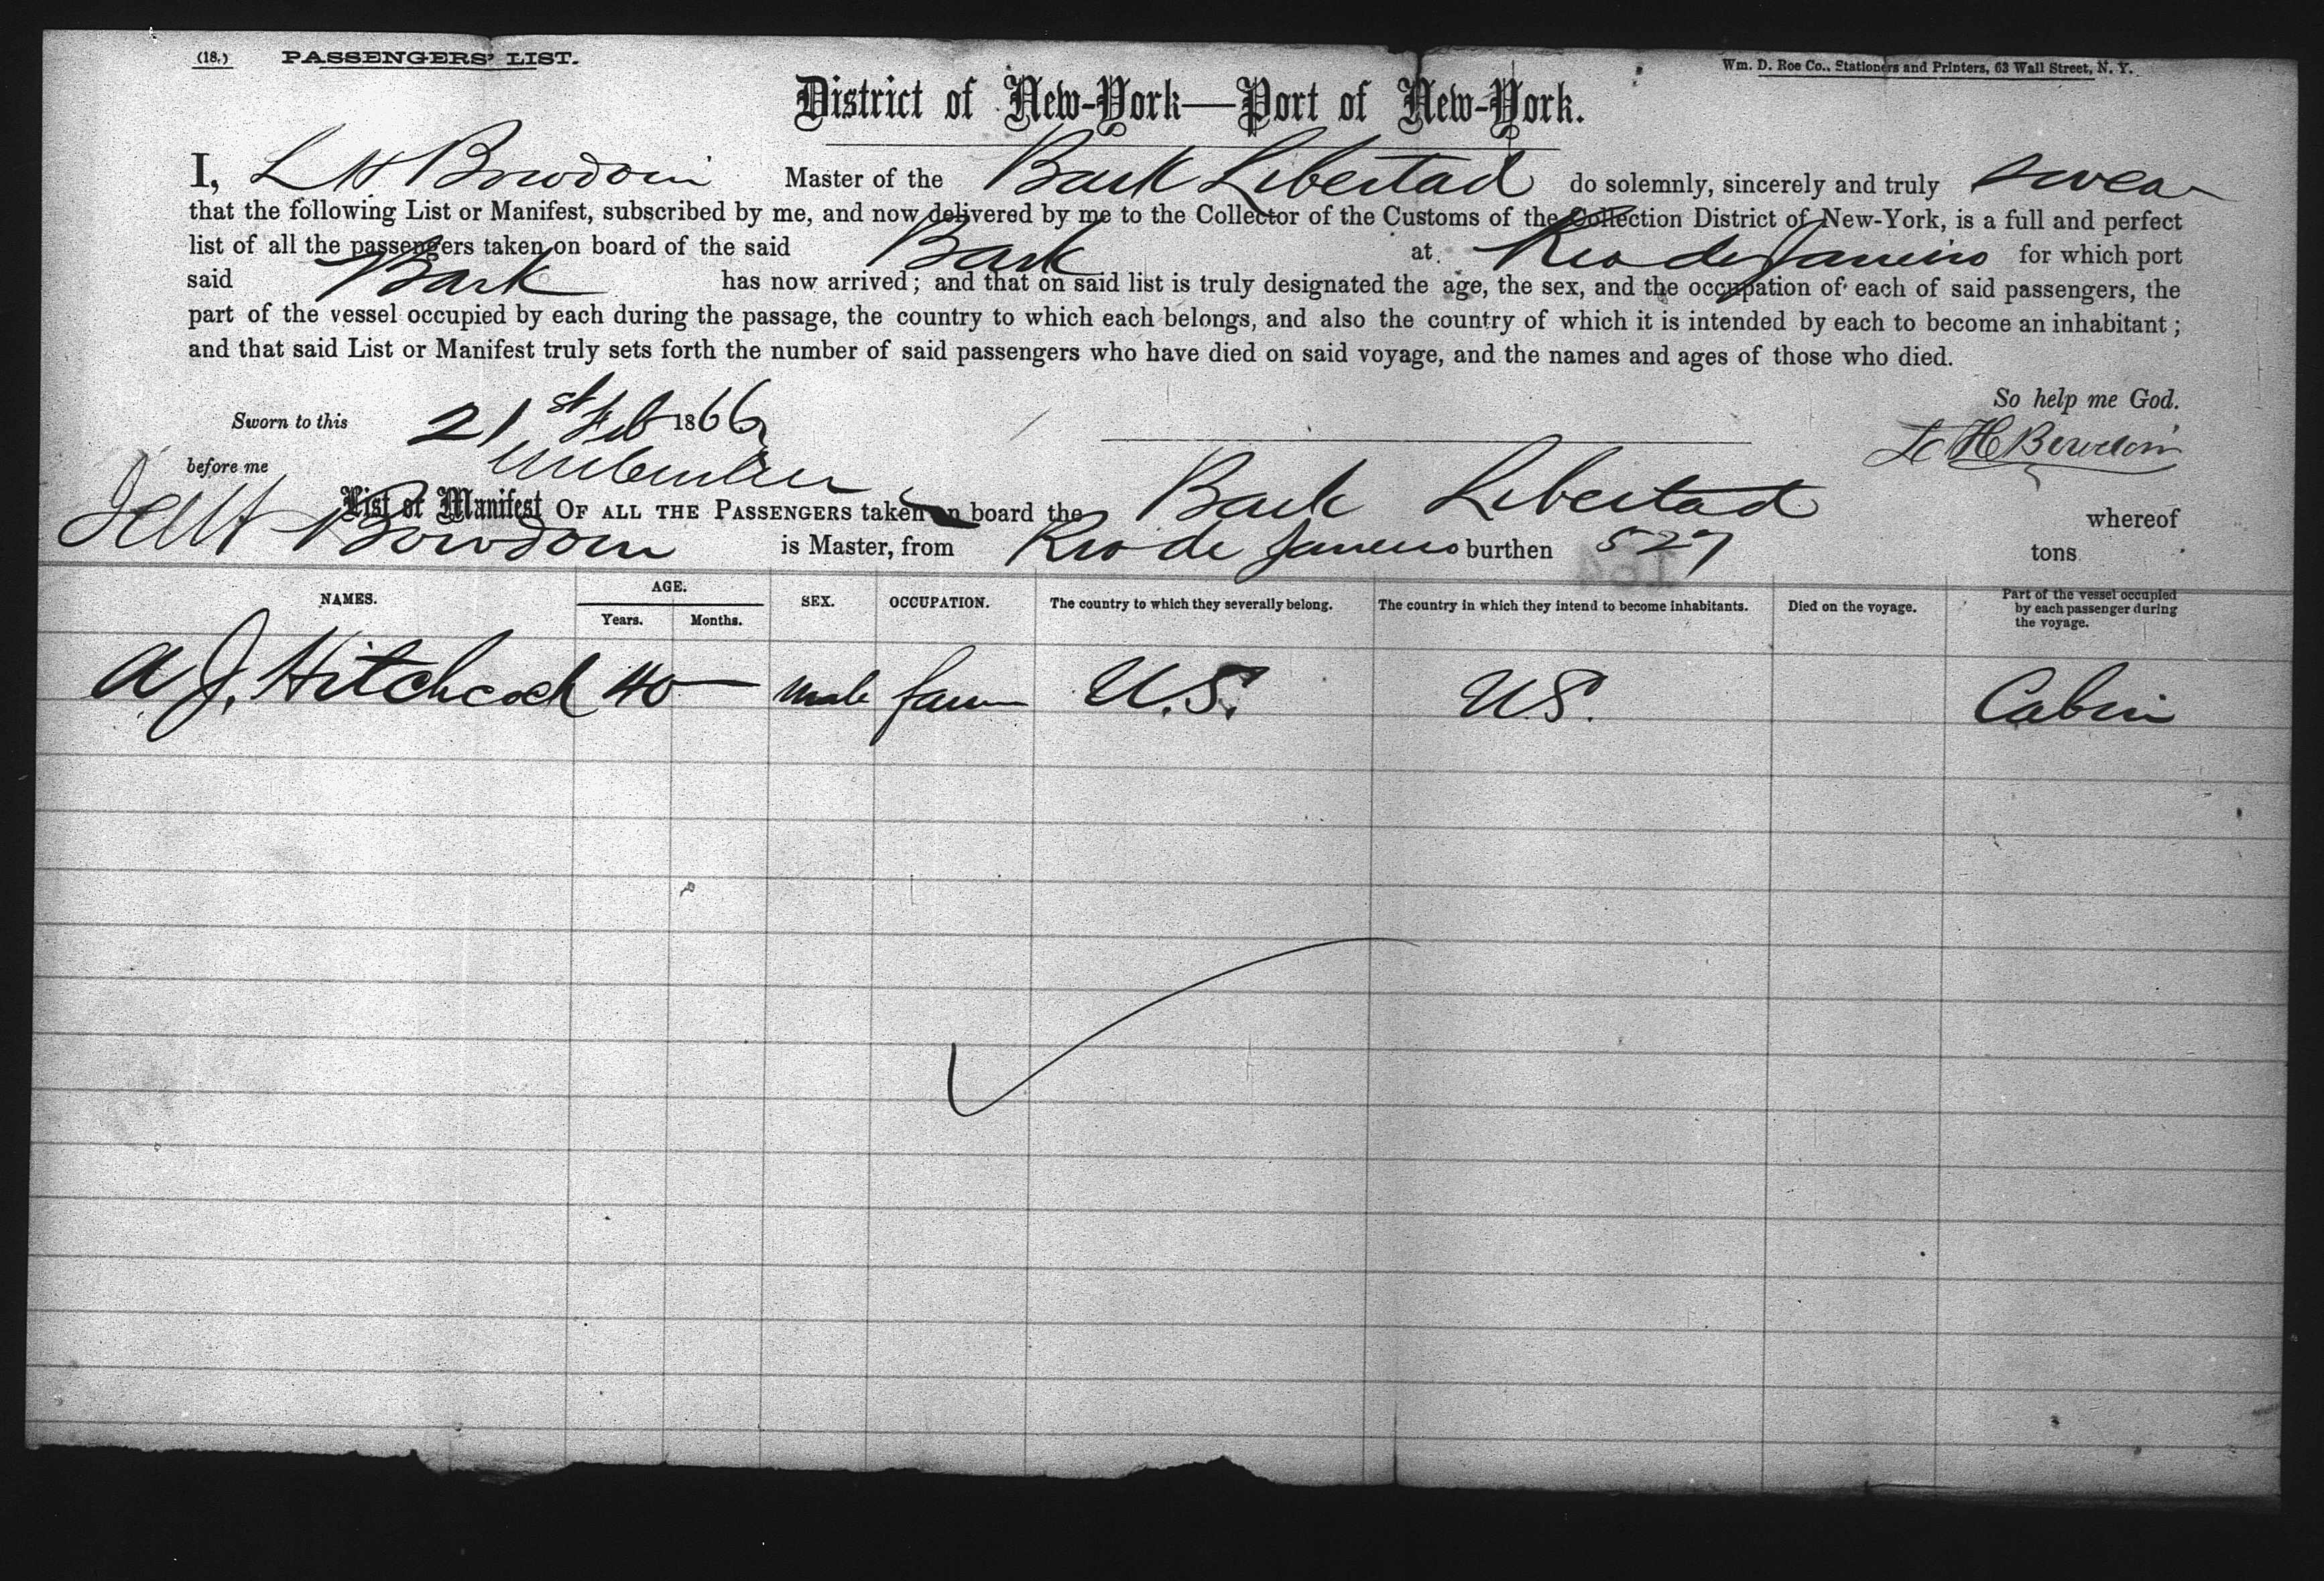 (18.) PASSENGERS' LIST.
Wm. D. Roe Co., Stationers and Printers, 63 Wall Street, N. Y.
District of New-York—Port of New-York.
I, L H Bowdoin Master of the Bark Libertad do solemnly, sincerely and truly swear
that the following List or Manifest, subscribed by me, and now delivered by me to the Collector of the Customs of the Collection District of New-York, is a full and perfect
list of all the passengers taken on board of the said Bark at Rio de Janeiro for which port
said Bark has now arrived; and that on said list is truly designated the age, the sex, and the occupation of each of said passengers, the
part of the vessel occupied by each during the passage, the country to which each belongs, and also the country of which it is intended by each to become an inhabitant;
and that said List or Manifest truly sets forth the number of said passengers who have died on said voyage, and the names and ages of those who died.
So help me God.
Sworn to this 21st Feb 1866
L H Bowdoin
before me
List or Manifest OF ALL THE PASSENGERS taken on board the Bark Libertad whereof
Bowdoin is Master, from Rio de Janeiro burthen 527 tons
NAMES. AGE. Years. Months. SEX. OCCUPATION. The country to which they severally belong. The country in which they intend to become inhabitants. Died on the voyage. Part of the vessel occupied by each passenger during the voyage.
A J. Hitchcock 40 — male U.S. U.S. Cabin